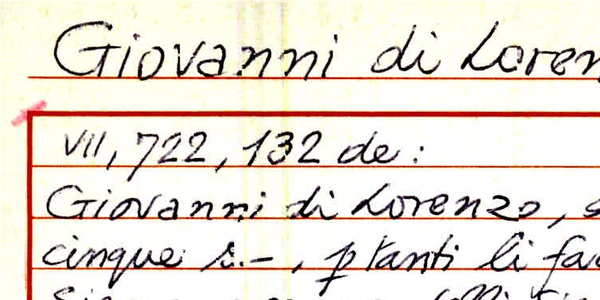 Giovanni di Loren
VII, 722, 132 de:
Giovanni di Lorenzo, s
cinque s.-, p tanti li fa